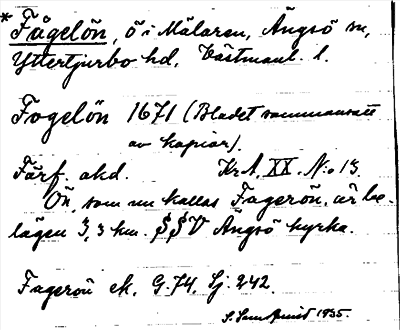 * Fågelön, ö i Mälaren, Ängsö sn,
Yttertjurbo hd, Västmanl. l.
Fogelön 1671 (Bladet sammansatt
av kopior).
Färf. akd. Kr.A. XX. N:o 13.
Ön, som nu kallas Fagerön, är be-
lägen 3,3 km. SSV Ängsö kyrka.
Fagerön ek. G. 74, Sj. 242.
1935.